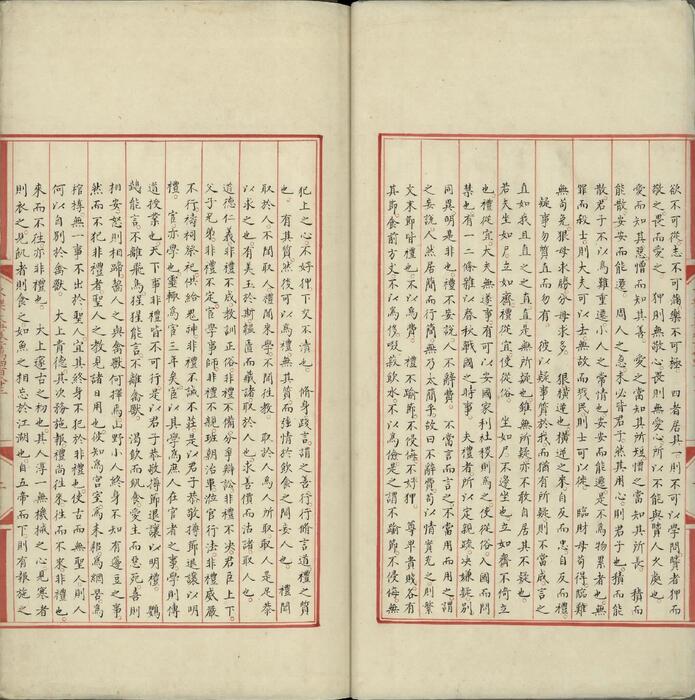 欲不可從志不可滿樂不可極　四者居其一則不可以學問賢者狎而
敬之畏而愛之　狎則無敬心畏則無愛心所以不能與賢人久處也
愛而知其惡憎而知其善　愛之當知其所短憎之當知其所長　積而
能散安安而能遷　周人之急未必皆君子也然其用心則君子也積而能
散君子不以為難重遷小人之常情也安安而能遷是不為物累者也無
罪而殺士則大夫可以去無故而戮民則士可以徙　臨財毋苟得臨難
無苟免狠毋求勝分毋求多　狠橫逆也橫逆之來自反而忠自反而禮
疑事勿質直而勿有　彼以疑事質於我而猶有所疑則不當咸言之
直如我且直之之直直是無所疑也雖無所疑亦不敢自居其不疑也
若夫坐如尸立如齊禮從宜使從俗　坐如尸不邊坐也立如齊不倚立
也禮從宜大夫無遂事有可以安國家利社稷則為之使從俗入國而問
禁也有一二條雜以春秋戰國之時事　夫禮者所以定親疏決嫌疑別
同異明是非也　禮不妄說人不辭費　不當言而言之不當用而用之謂
之妄說人然居簡而行簡無乃太簡乎故曰不辭費苟以情實先之則繁
文末節皆禮也不以為費　禮不踰節不侵侮不好狎　尊卑貴賤各有
其節食前方丈不以為侈啜菽飲水不以為儉是之謂不踰節不侵侮無
犯上之心不好狎下交不瀆也　修身踐言謂之善行行修言道禮之質
也　有其質然後可以為禮無其質而強情於飲食之間妄人也　禮聞
取於人不聞取人禮聞來學不聞往教　取於人為人所取取人是足恭
以求之也有美玉於斯韞匵而藏諸取於人也求善價而沽諸取人也
道德仁義非禮不成教訓正俗非禮不備分爭辯訟非禮不決君臣上下
父子兄弟非禮不定宦學事師非禮不親班朝治軍涖官行法非禮威嚴
不行禱祠祭祀供給鬼神非禮不誠不莊是以君子恭敬撙節退讓以明
禮　官亦學也靈輒為宦三年矣宦以其學為庶人在官者之事學則傳
道授業也天下事非禮皆不可行是以君子恭敬撙節退讓以明禮　鸚
鵡能言不離飛鳥猩猩能言不離禽獸　渴飲而飢食愛生而惡死喜則
相安怒則相蹄齧人之與禽獸何擇焉山野小人終身不知有籩豆之事
然而不犯非禮者聖人之教見諸日用也彼知為宮室為耒耜為網罟為
棺槨無一事不出於聖人宜其終身不犯於非禮也使古而無聖人則人
何以自別於禽獸　大上貴德其次務施報禮尚往來往而不來非禮也
來而不往亦非禮也　大上邃古之初也其人淳一無機械之心見寒者
則衣之見飢者則食之如魚之相忘於江湖也自五帝而下則有報施之